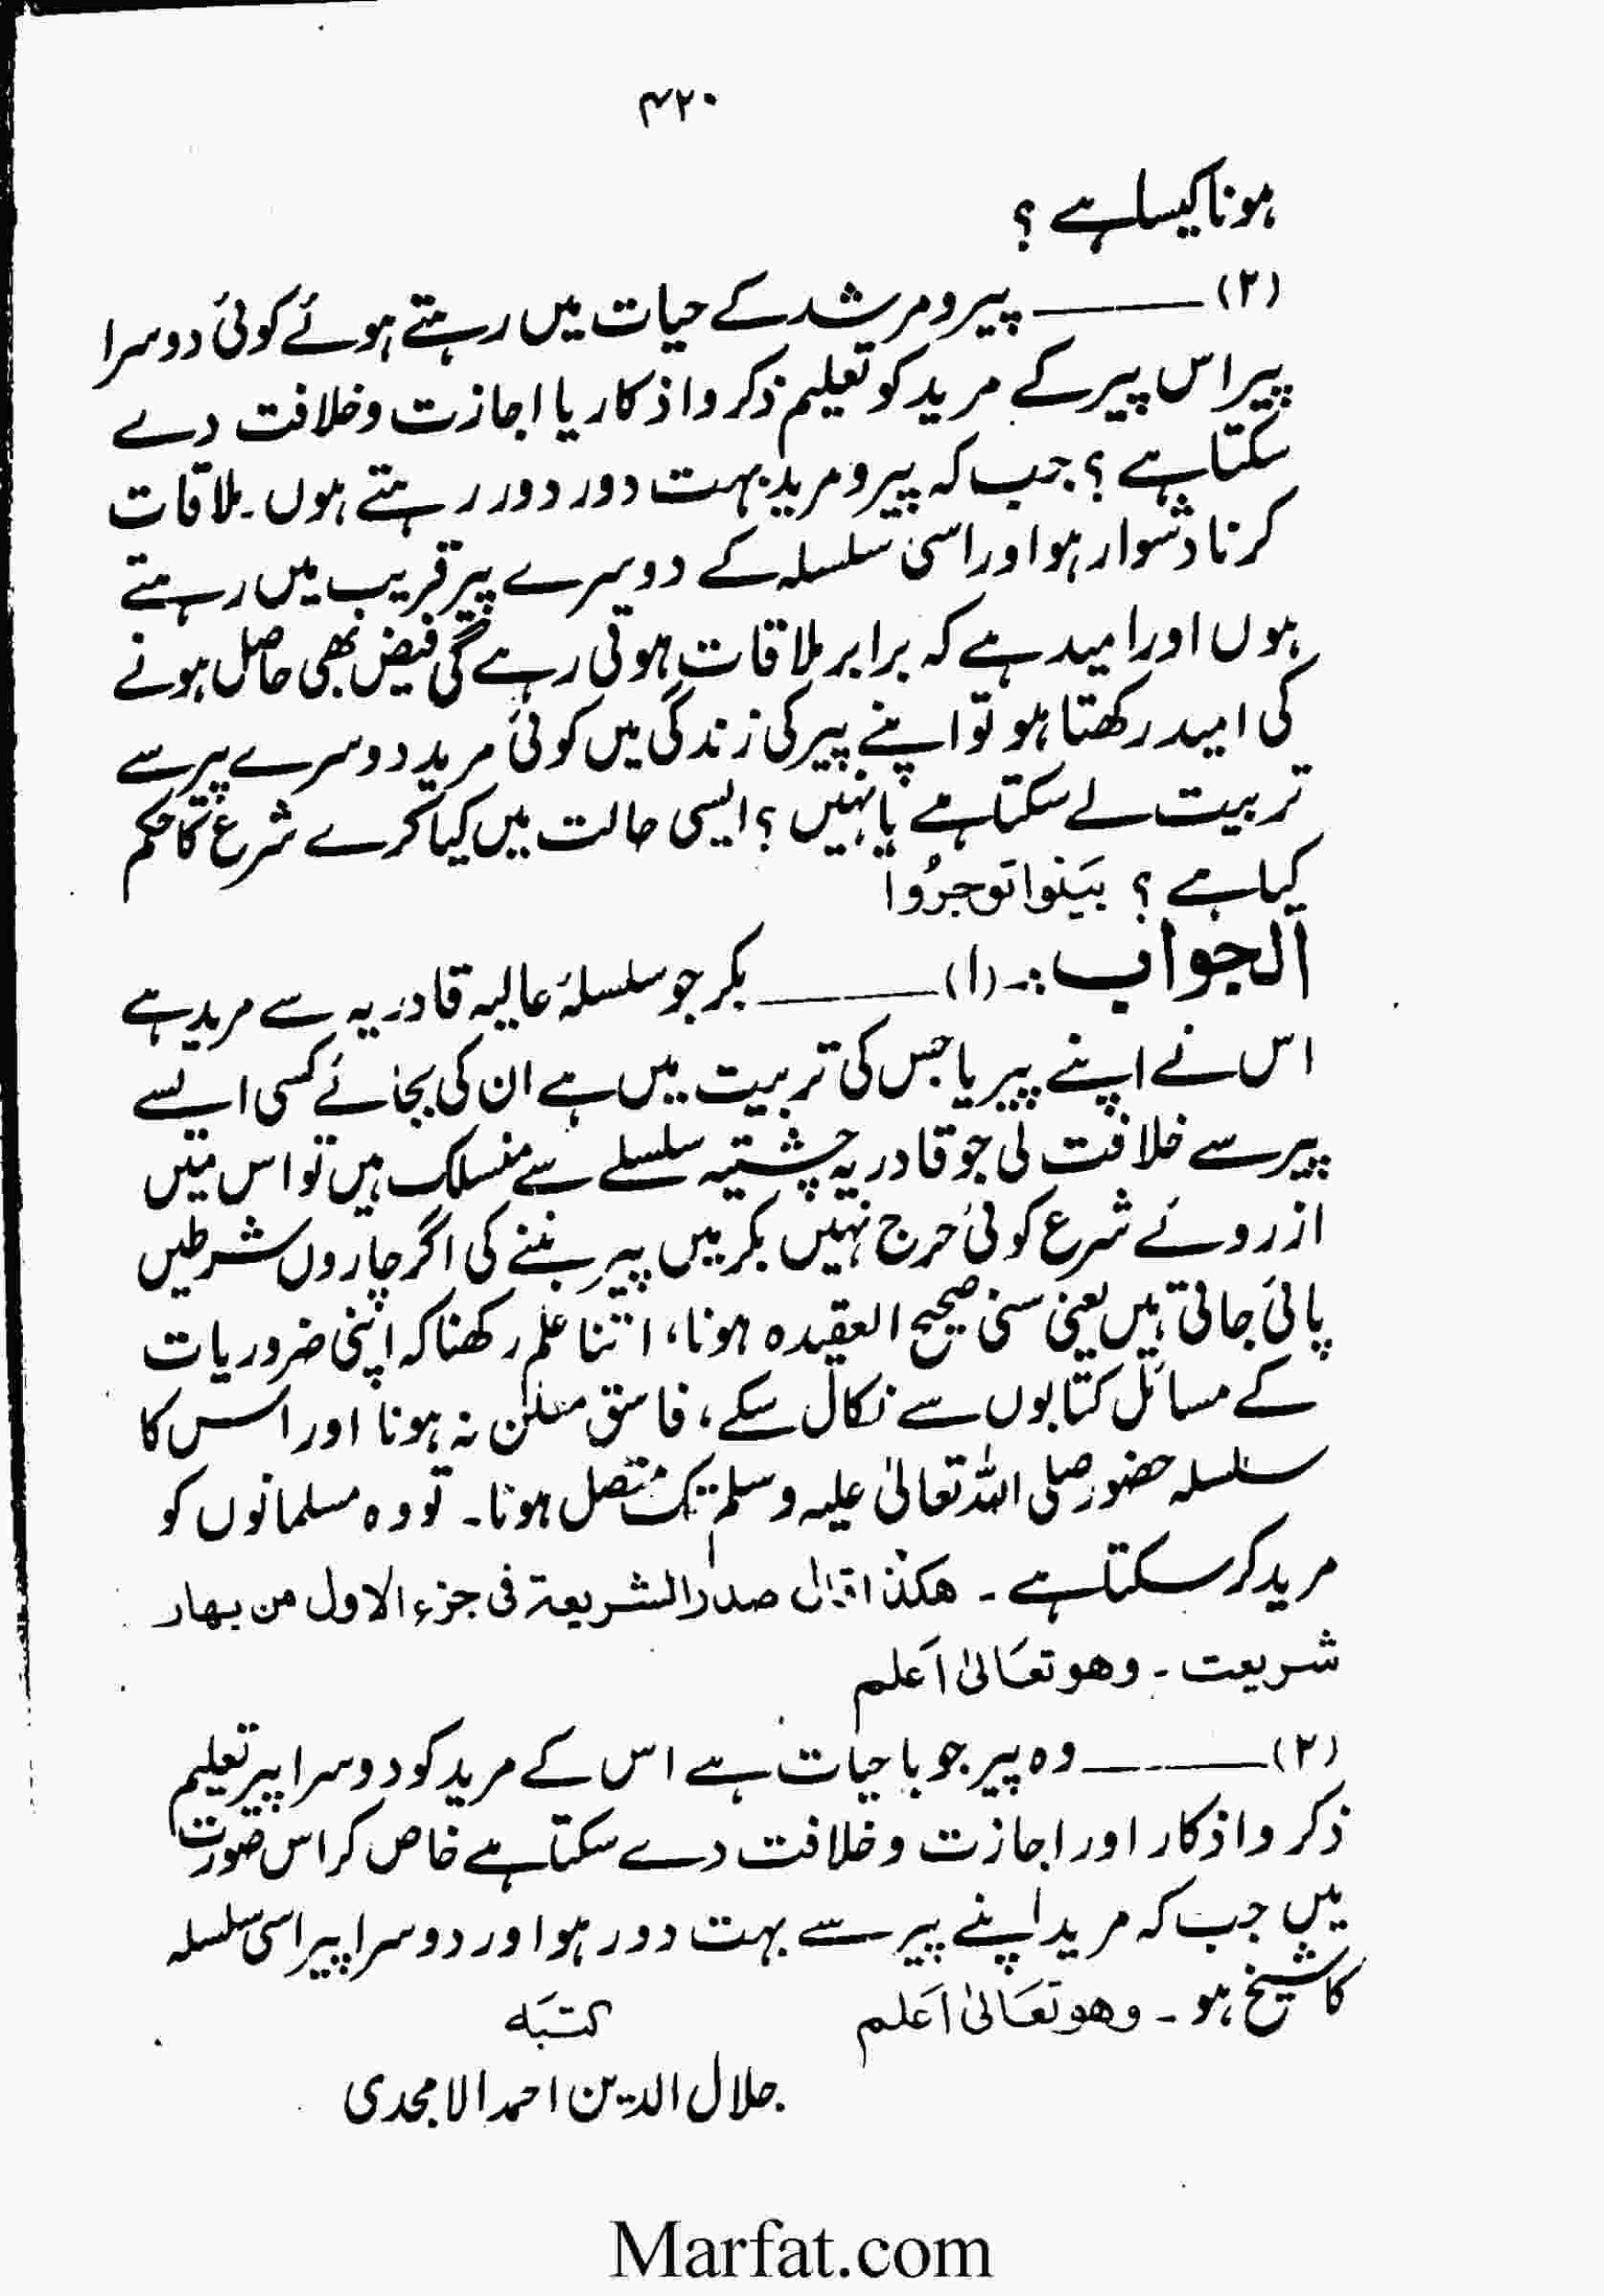 ۴۲۰
ہونا کیسا ہے ؟
(۲) ـــــــــ پیرو مرشد کے حیات میں رہتے ہوئے کوئی دوسرا
پیر اس پیر کے مرید کو تعلیم ذکر و اذکار یا اجازت و خلافت دے
سکتا ہے ؟ جب کہ پیر و مرید بہت دور دور رہتے ہوں۔ ملاقات
کرنا دشوار ہو اور اسی سلسلہ کے دوسرے پیر قریب میں رہتے
ہوں اور امید ہے کہ برابر ملاقات ہوتی رہے گی فیض بھی حاصل ہونے
کی امید رکھتا ہو تو اپنے پیر کی زندگی میں کوئی مرید دوسرے پیر سے
تربیت لے سکتا ہے یا نہیں ؟ ایسی حالت میں کیا کرے شرع کا حکم
کیا ہے ؟ بَیّنوا توجرُوا
الجواب :۔ (۱) ـــــــــ بکر جو سلسلۂ عالیہ قادریہ سے مرید ہے
اس نے اپنے پیر یا جس کی تربیت میں ہے ان کی بجائے کسی ایسے
پیر سے خلافت لی جو قادریہ چشتیہ سلسلے سے منسلک ہیں تو اس میں
از روئے شرع کوئی حرج نہیں بکر میں پیر بننے کی اگر چاروں شرطیں
پائی جاتی ہیں یعنی سنی صحیح العقیدہ ہونا، اتنا علم رکھنا کہ اپنی ضروریات
کے مسائل کتابوں سے نکال سکے، فاسق معلن نہ ہونا اور اس کا
سلسلہ حضور صلی اللہ تعالیٰ علیہ وسلم تک متصل ہونا۔ تو وہ مسلمانوں کو
مرید کر سکتا ہے۔ ھکذا قال صدر الشریعۃ فی جزء الاول من بھار
شریعت۔ وھو تعَالیٰ اَعلم
(۲) ـــــــــ وہ پیر جو با حیات ہے اس کے مرید کو دوسرا پیر تعلیم
ذکر و اذکار اور اجازت و خلافت دے سکتا ہے خاص کر اس صورت
میں جب کہ مرید اپنے پیر سے بہت دور ہو اور دوسرا پیر اسی سلسلہ
کا شیخ ہو۔ وھو تعَالیٰ اَعلم
کتبَہ
جلال الدین احمد الامجدی
Marfat.com